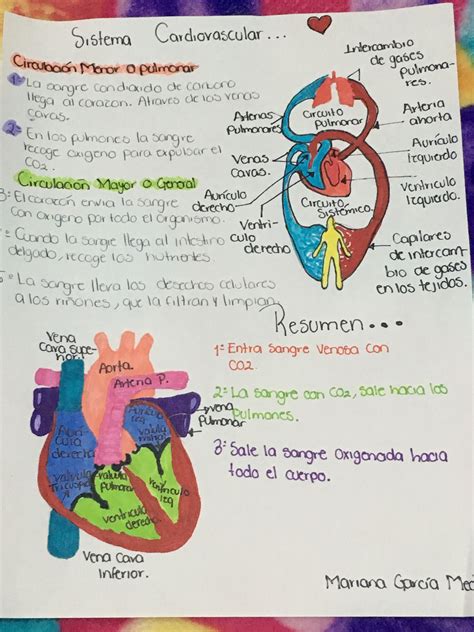 Sistema Cardiovascular...
Circulación Menor o Pulmonar
1- La sangre con dioxido de carbono
llega al corazon. Atraves de las venas
cavas.
2- En los pulmones la sangre
recoge oxigeno para expulsar el
CO2.
Circulación Mayor o General
3- El corazón envia la sangre
con oxigeno por todo el organismo.
Cuando la sangre llega al intestino
delgado, recoge los nutrientes
La sangre lleva los desechos celulares
a los riñones, que la filtran y limpian
Intercambio
de gases
Pulmona-
res.
Arterias
Pulmonares
Circuito
Pulmonar
Arteria
ahorta
Venas
cavas.
Aurículo
Izquierdo
Aurículo
derecho
Circuito
Sistémico
Ventriculo
Izquierdo.
Ventri-
culo
derecho
Capilares
de intercam-
bio de gases
en los tejidos.
Resumen...
1- Entra sangre venosa con
CO2.
2- La sangre con CO2, sale hacia los
Pulmones.
3- Sale la sangre oxigenada hacia
todo el cuerpo.
Vena
Cava supe-
rior
Aorta.
Arteria P.
vena
Pulmonar
derecha
valvula
Pulmonar
ventriculo
izq
ventriculo
derecho
Vena Cava
Inferior.
Mariana García